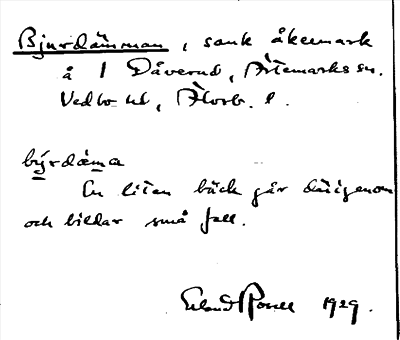 Bjurdämman, sank åkermark
å 1 Dåverud, Ärtemarks sn.
Vedbo hd, Älvsb. l.
býrdäma
En liten bäck går därigenom
och bildar små fall.
Erland Rosell 1929.